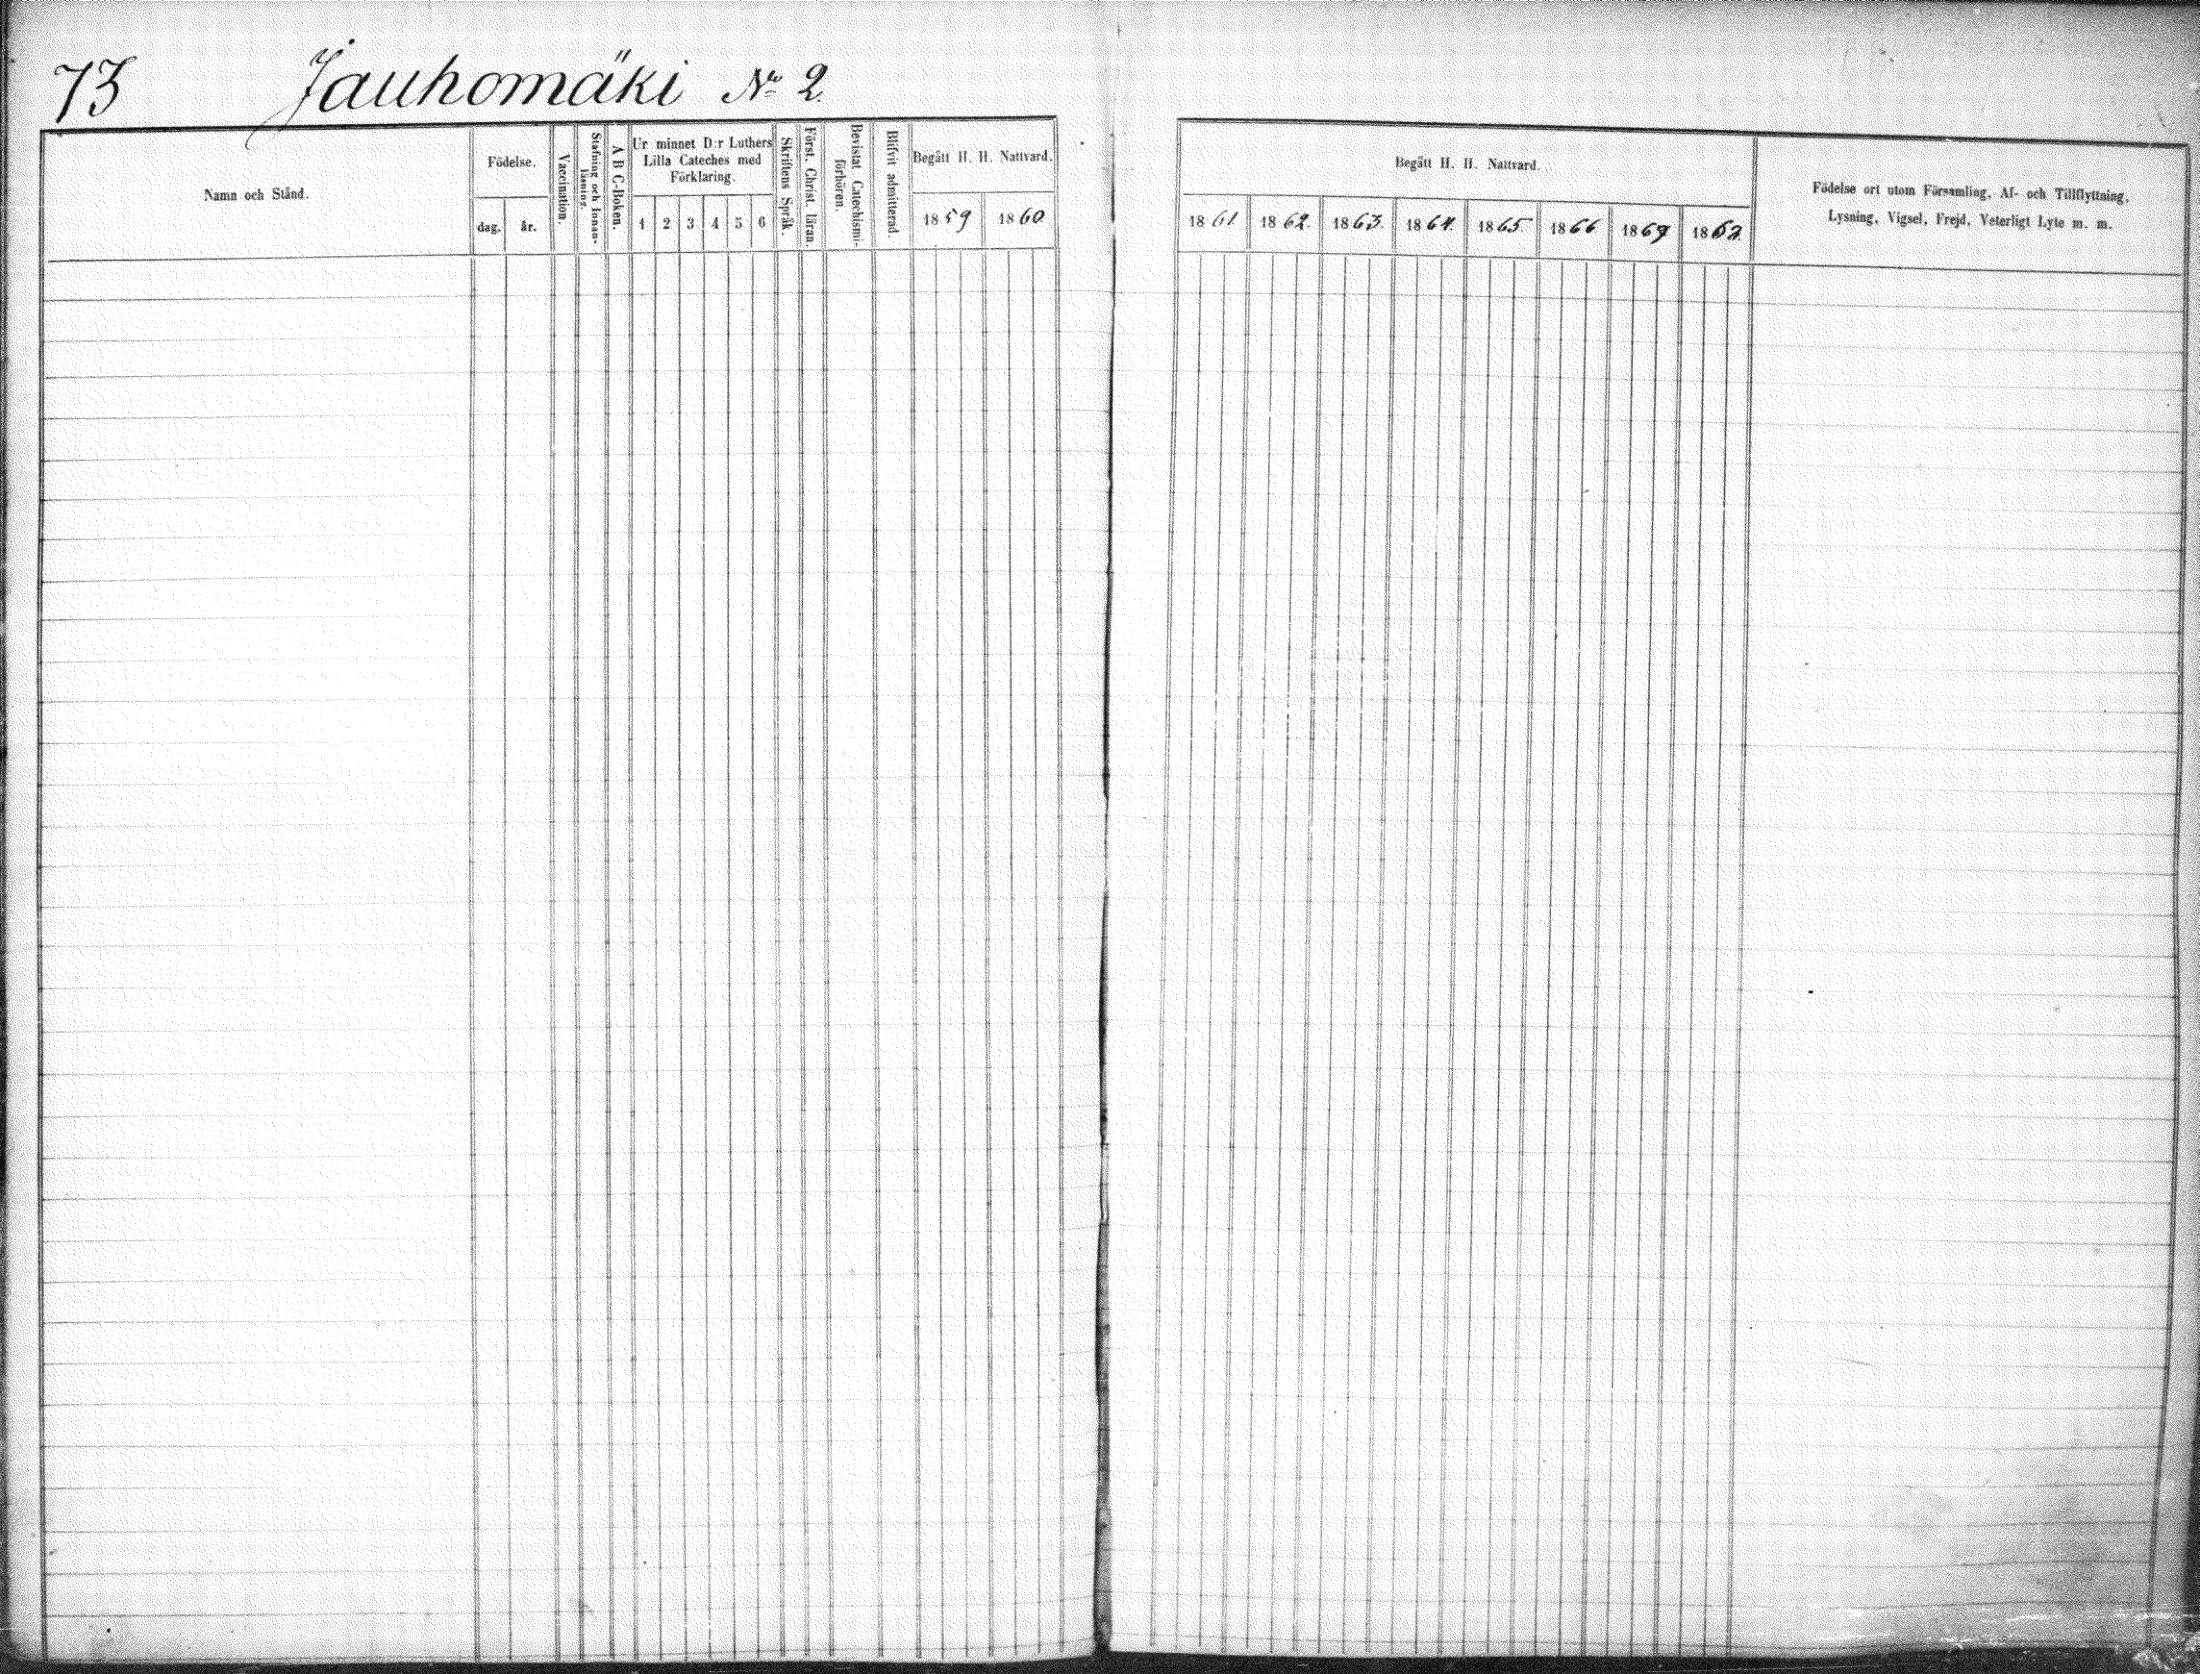 73 Jauhomäki No 2.
Namn och Stånd.
Födelse.
dag. år.
Vaccination.
Stafning och Innan-
läsning.
A B C-Boken.
Ur minnet D:r Luthers
Lilla Cateches med
Förklaring.
1 2 3 4 5 6
Skriftens Språk.
Först. Christ. läran.
Bevistat Catechismi-
förhören.
Blifvit admitterad.
Begått H. H. Nattvard.
1859 1860
Begått H. H. Nattvard.
1861. 1862. 1863. 1864. 1865. 1866
Födelse ort utom Församling, Af- och Tillflyttning,
Lysning, Vigsel, Frejd, Veterligt Lyte m. m.